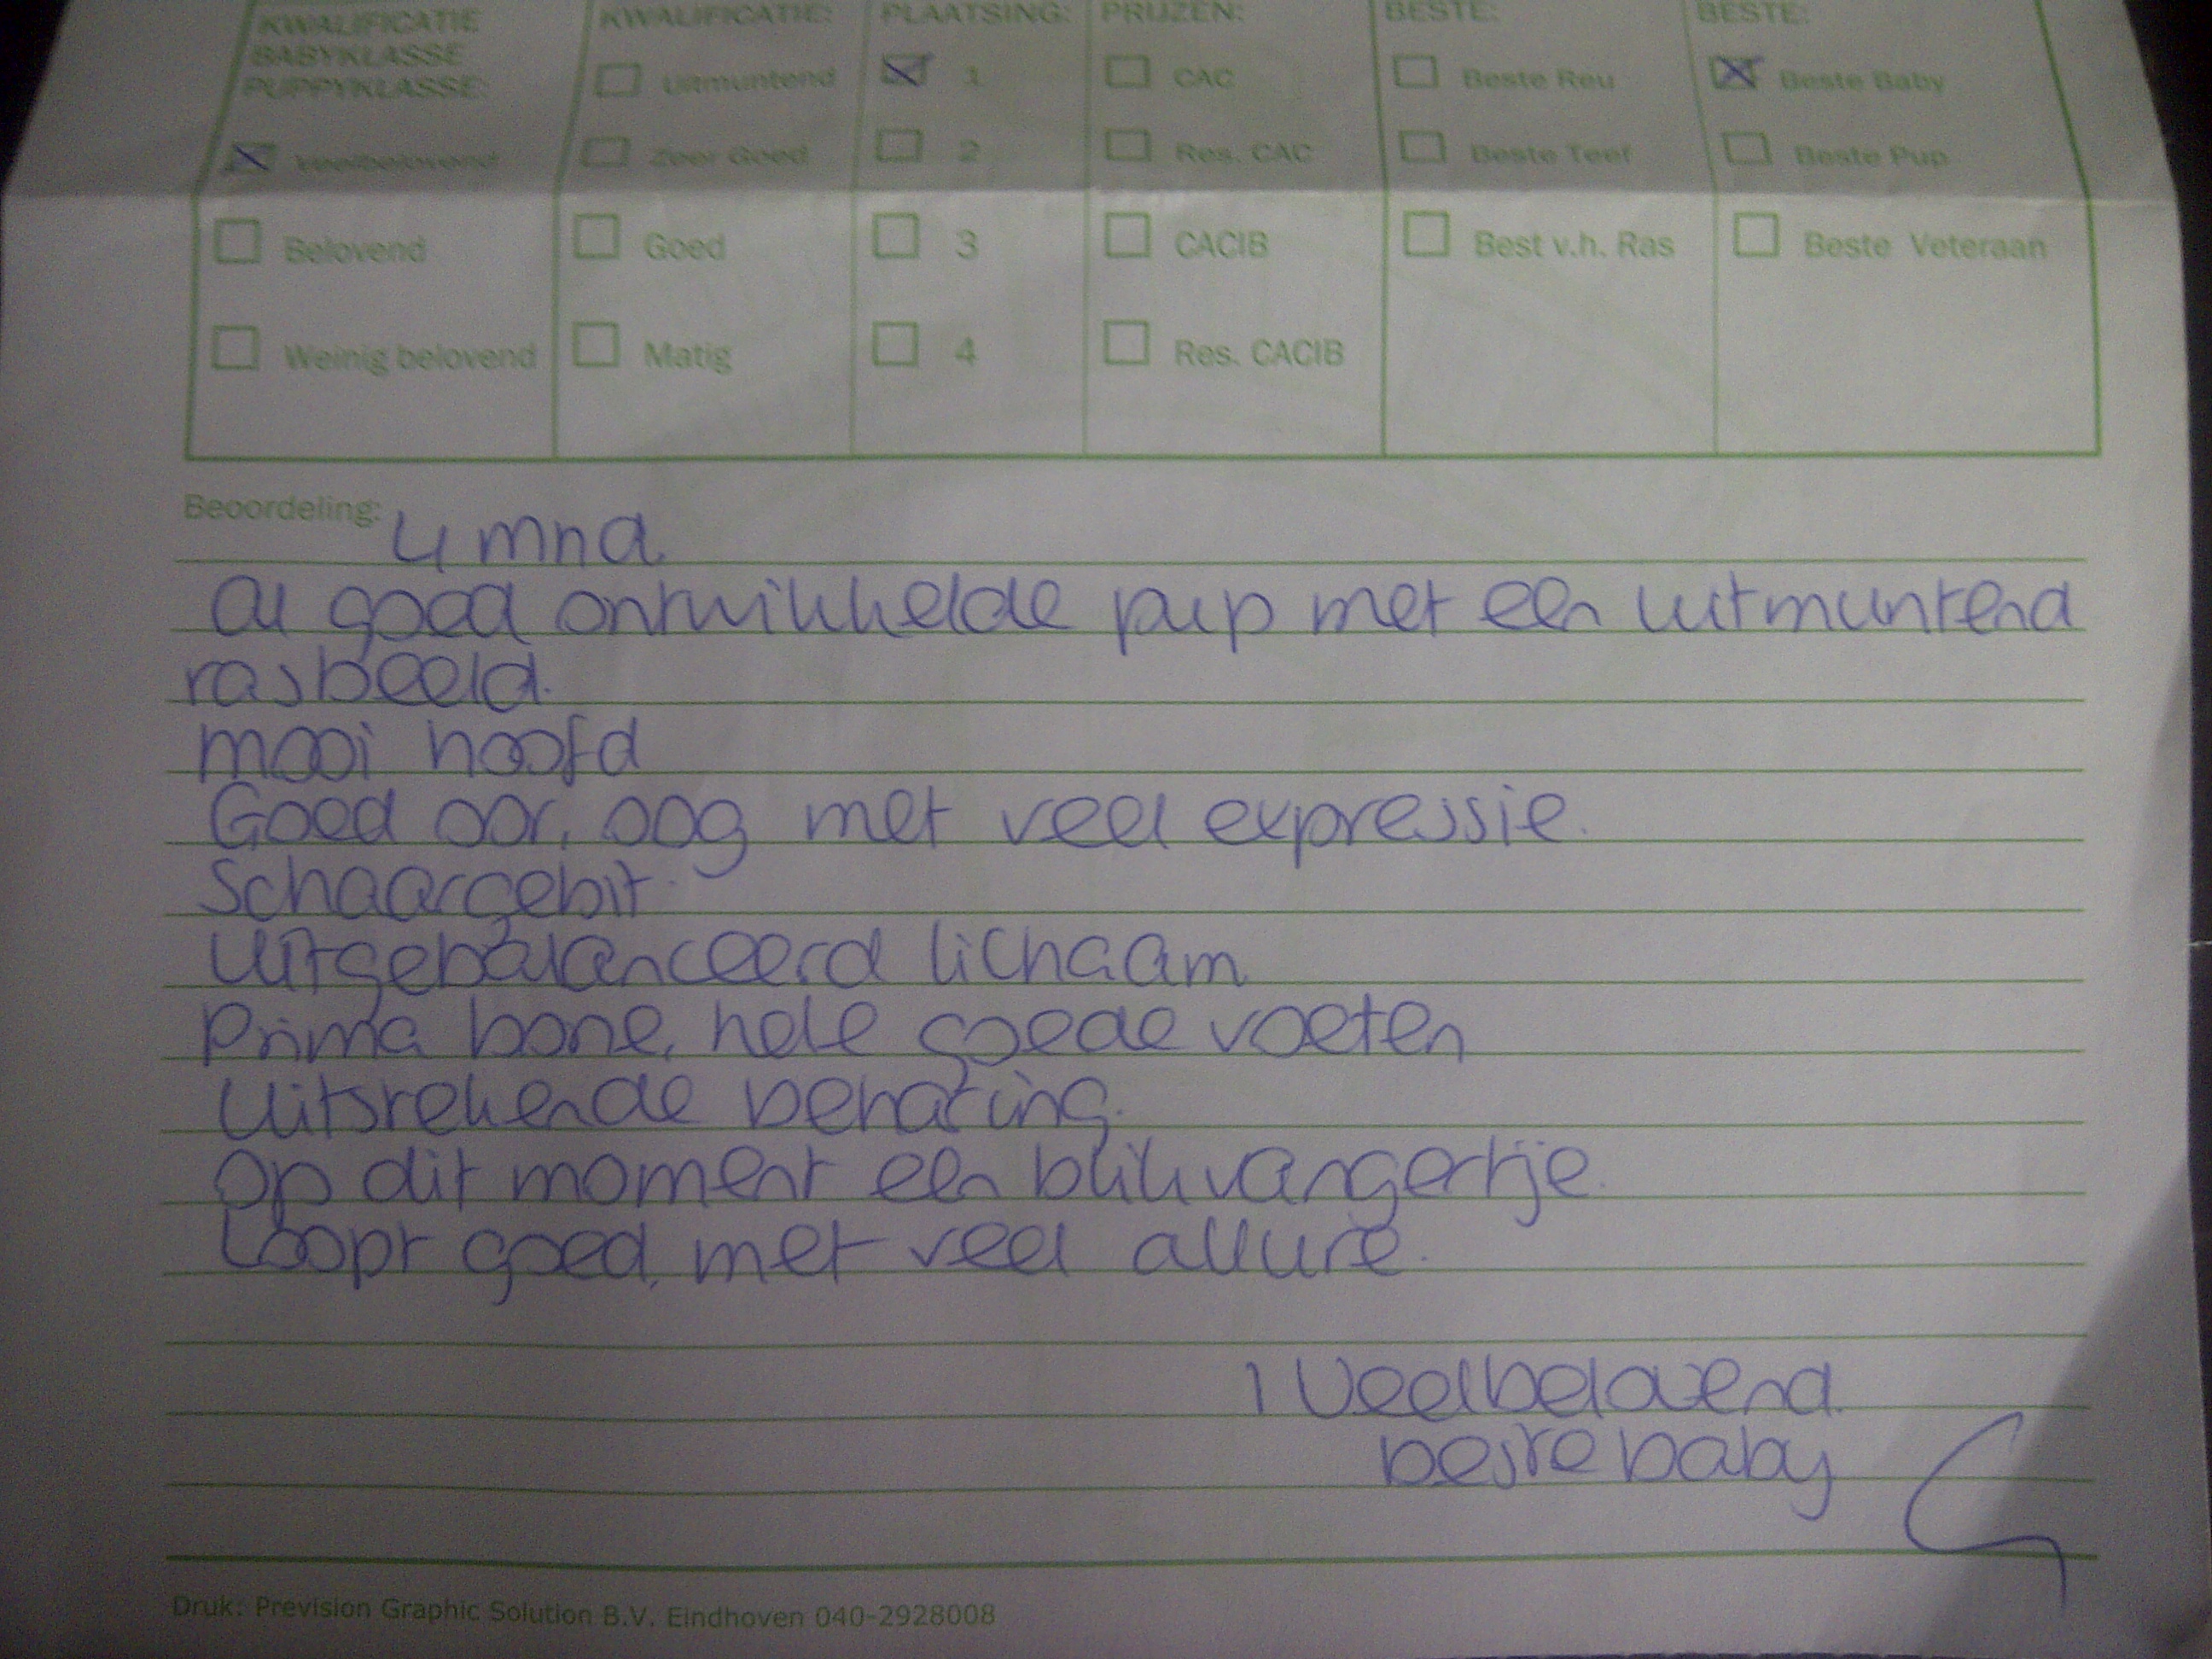 KWALIFICATIE
BABYKLASSE
PUPPYKLASSE:
KWALIFICATIE:
PLAATSING:
PRIJZEN:
BESTE:
BESTE:
Uitmuntend
1
CAC
Beste Reu
Beste Baby
Veelbelovend
Zeer Goed
2
Res. CAC
Beste Teef
Beste Pup
Belovend
Goed
3
CACIB
Best v.h. Ras
Beste Veteraan
Weinig belovend
Matig
4
Res. CACIB
Beoordeling: 4 mnd.
Al goed ontwikkelde pup met een uitmuntend
rasbeeld.
mooi hoofd
Goed oor, oog met veel expressie.
Schaargebit.
Uitgebalanceerd lichaam
Prima bone, hele goede voeten
Uitstekende beharing.
Op dit moment een blikvangertje.
Loopt goed, met veel allure.
1 Veelbelovend.
beste baby
Druk: Prevision Graphic Solution B.V. Eindhoven 040-2928008